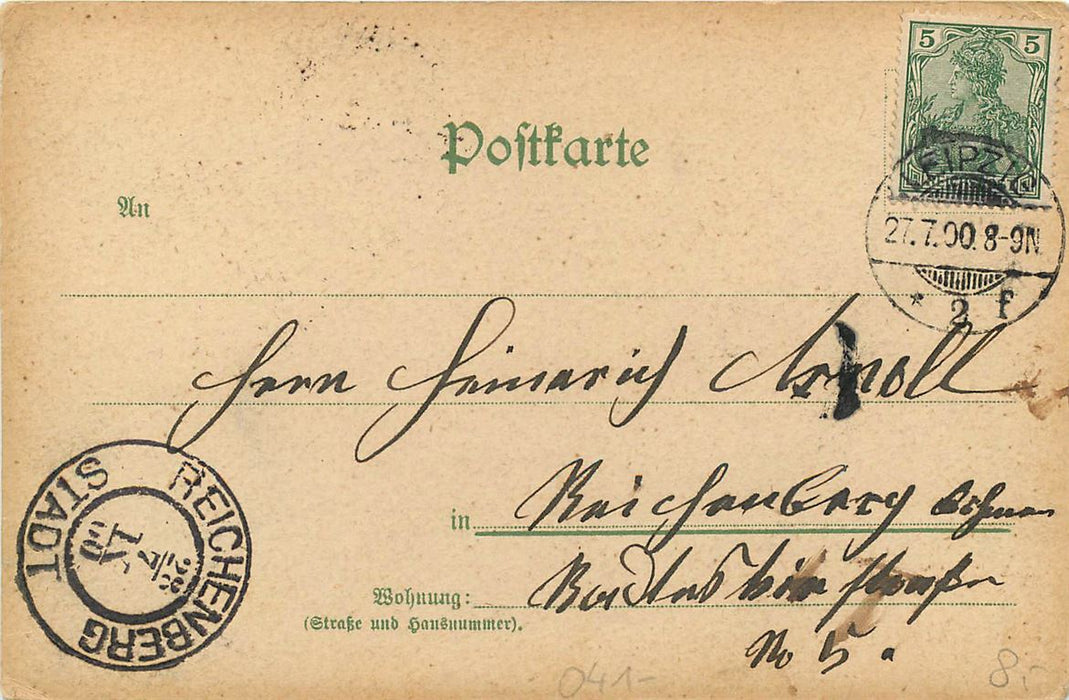 5 5
Postkarte
LEIPZIG
27.7.00. 8-9N
* 2 f
An
Herrn Heinrich
in Reichenberg Böhmen
Wohnung:
(Straße und Hausnummer).
No 5.
REICHENBERG
STADT
28/7
041-
8.-